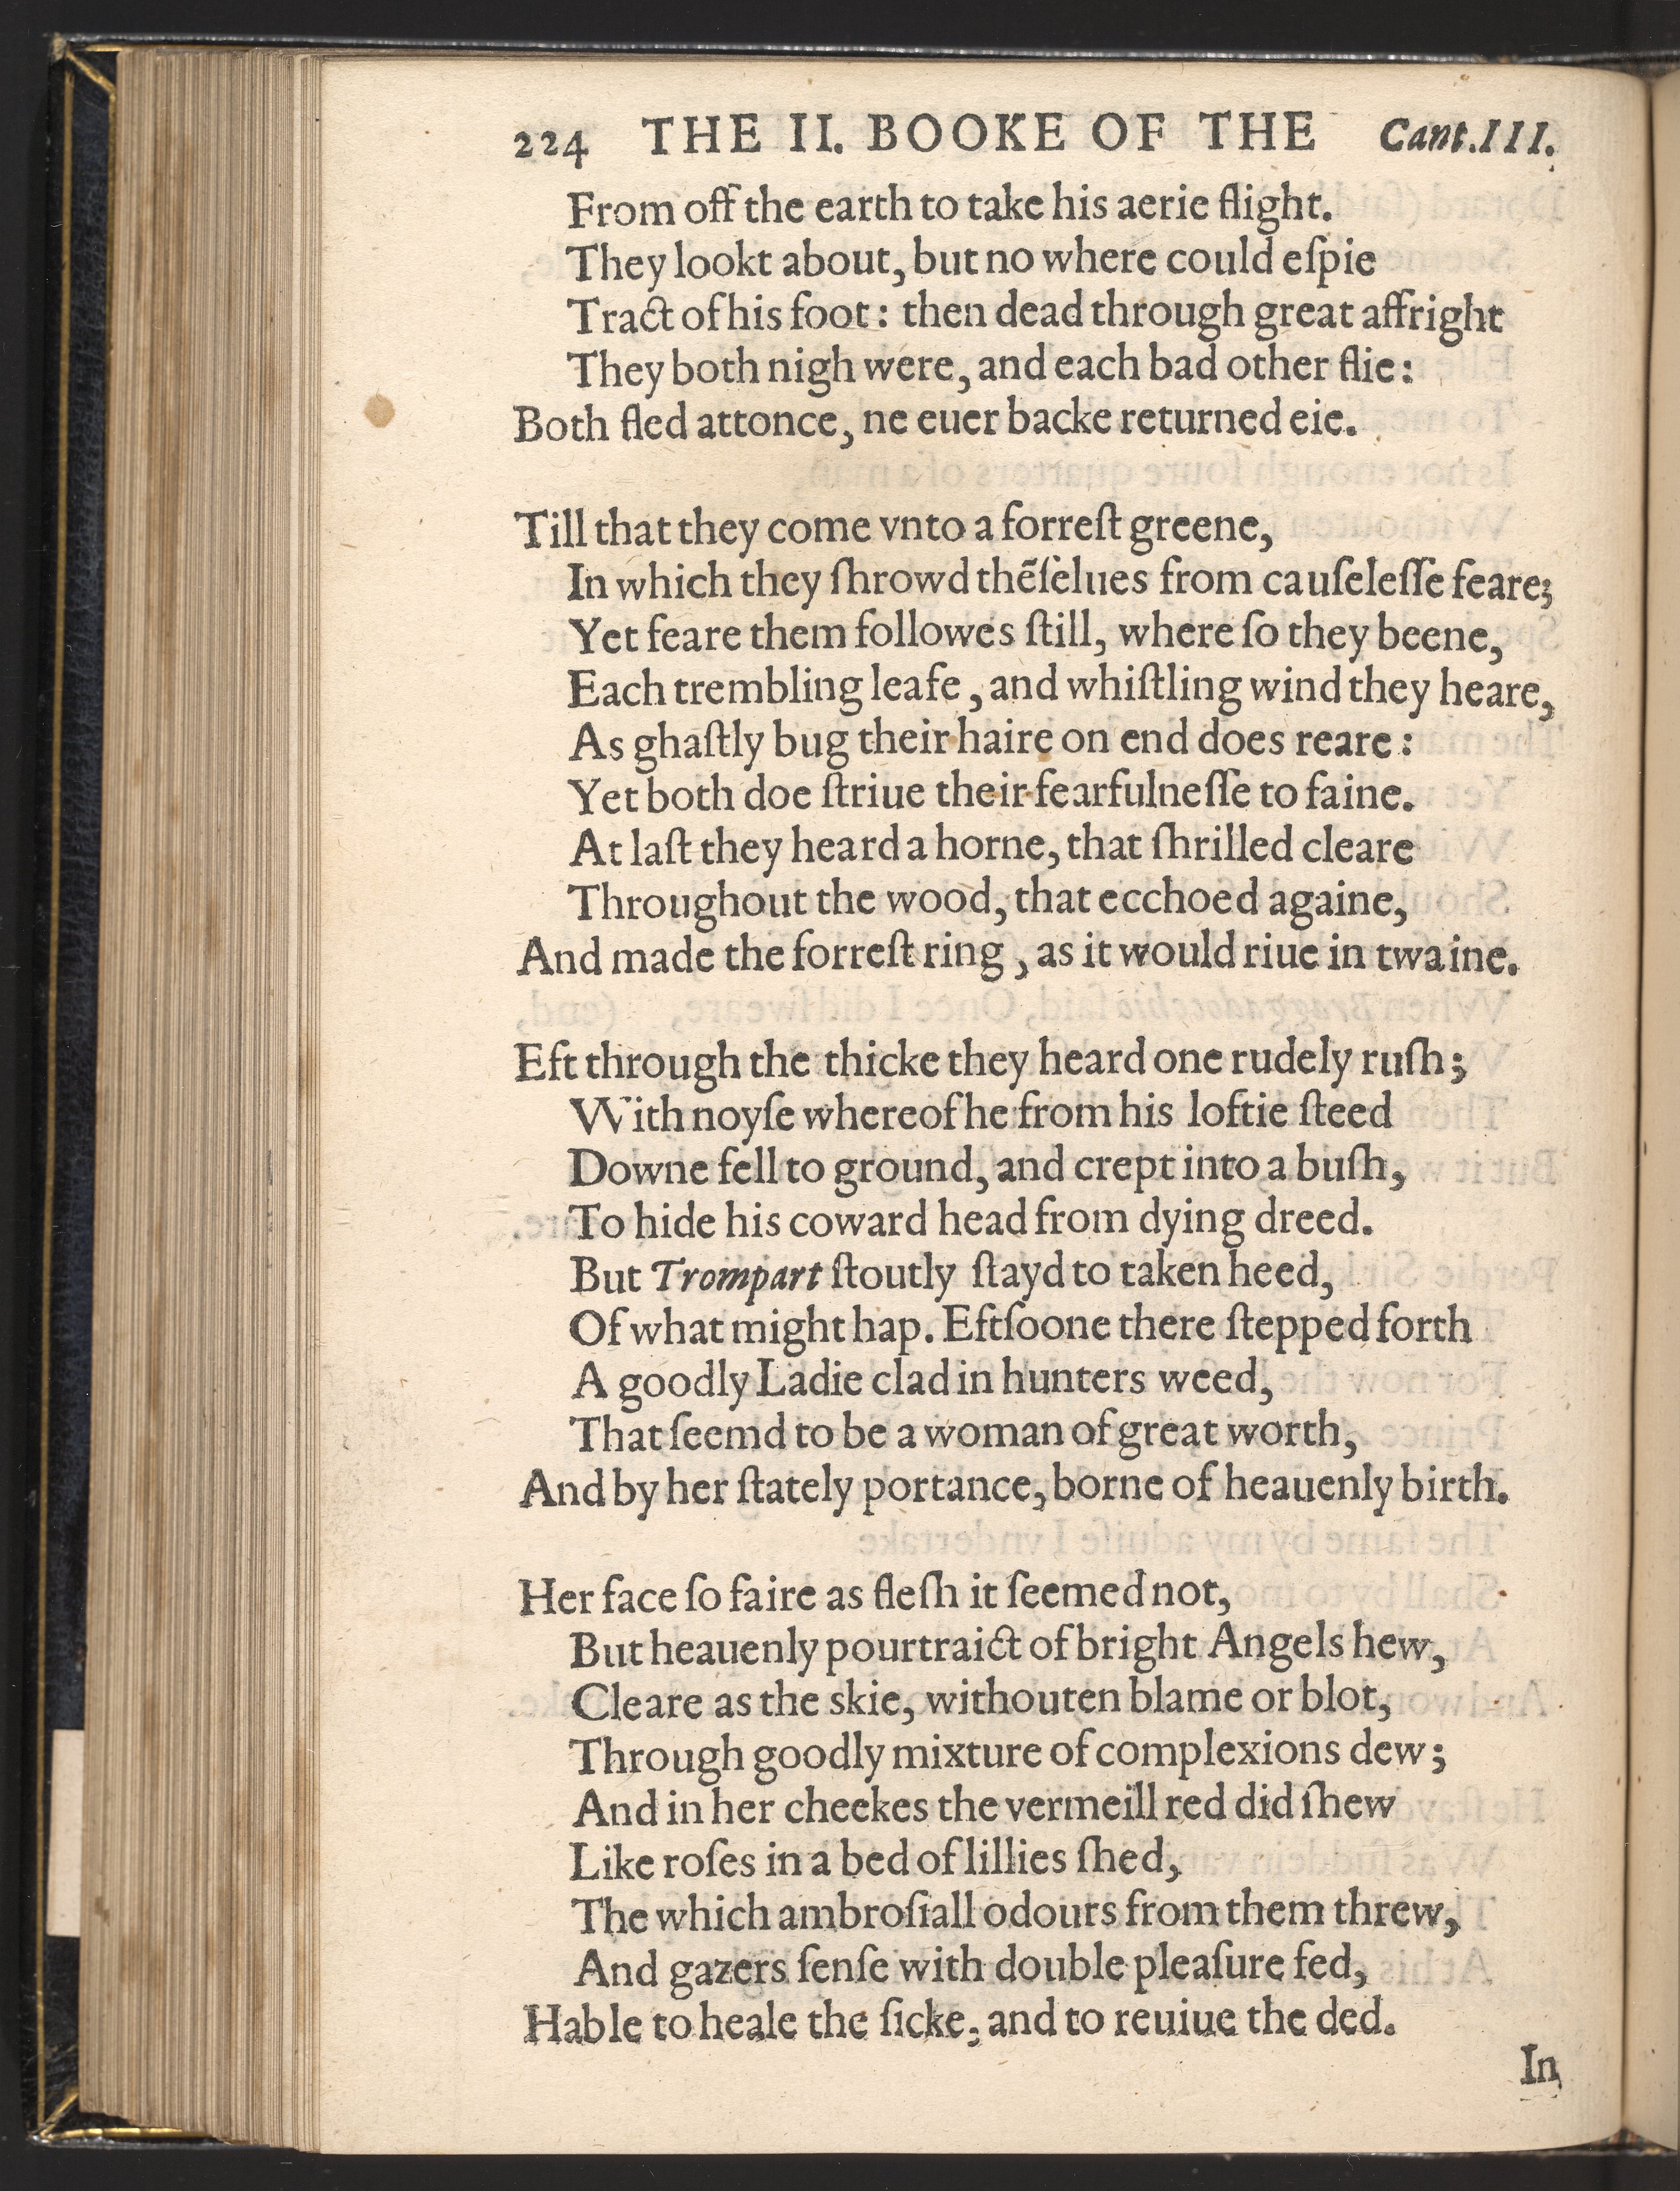 224 THE II. BOOKE OF THE Cant.III.
From off the earth to take his aerie flight.
They lookt about, but no where could eſpie
Tract of his foot: then dead through great affright
They both nigh were, and each bad other flie:
Both fled attonce, ne euer backe returned eie.
Till that they come vnto a forreſt greene,
In which they ſhrowd thẽſelues from cauſeleſſe feare;
Yet feare them followes ſtill, where ſo they beene,
Each trembling leafe, and whiſtling wind they heare,
As ghaſtly bug their haire on end does reare:
Yet both doe ſtriue their fearfulneſſe to faine.
At laſt they heard a horne, that ſhrilled cleare
Throughout the wood, that ecchoed againe,
And made the forreſt ring, as it would riue in twaine.
Eft through the thicke they heard one rudely ruſh;
With noyſe whereof he from his loftie ſteed
Downe fell to ground, and crept into a buſh,
To hide his coward head from dying dreed.
But Trompart ſtoutly ſtayd to taken heed,
Of what might hap. Eftſoone there ſtepped forth
A goodly Ladie clad in hunters weed,
That ſeemd to be a woman of great worth,
And by her ſtately portance, borne of heauenly birth.
Her face ſo faire as fleſh it ſeemed not,
But heauenly pourtraict of bright Angels hew,
Cleare as the skie, withouten blame or blot,
Through goodly mixture of complexions dew;
And in her cheekes the vermeill red did ſhew
Like roſes in a bed of lillies ſhed,
The which ambroſiall odours from them threw,
And gazers ſenſe with double pleaſure fed,
Hable to heale the ſicke, and to reuiue the ded.
In